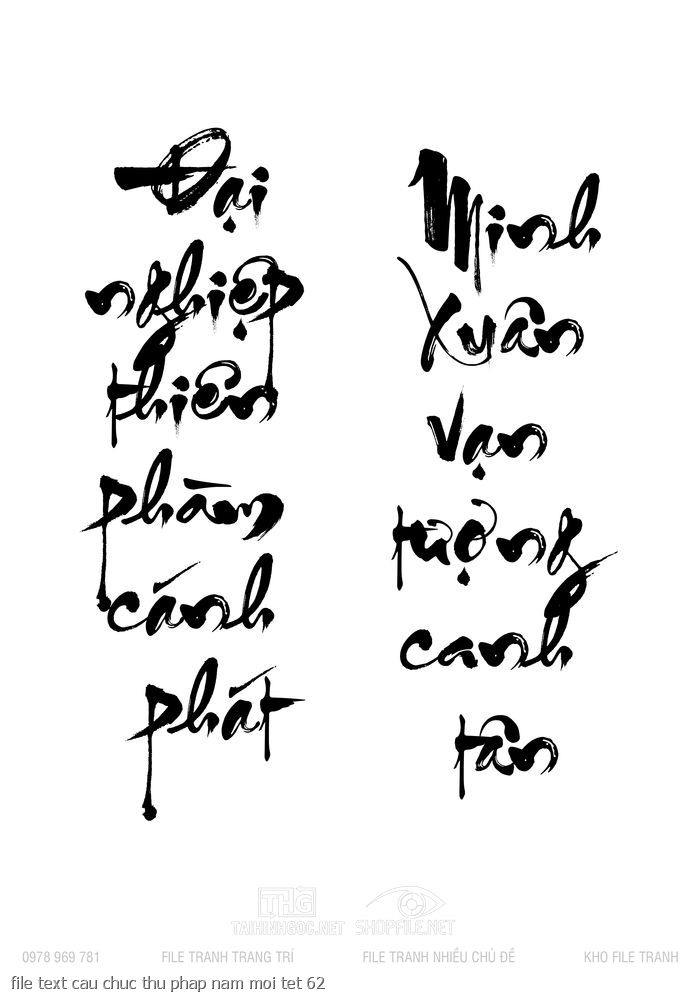 Đại
nghiệp
thiên
phàm
cánh
phát
Minh
Xuân
vạn
tượng
canh
tân
THG
TAIHINHGOC.NET SHOPFILE.NET
0978 969 781 FILE TRANH TRANG TRÍ FILE TRANH NHIỀU CHỦ ĐỀ KHO FILE TRANH
file text cau chuc thu phap nam moi tet 62